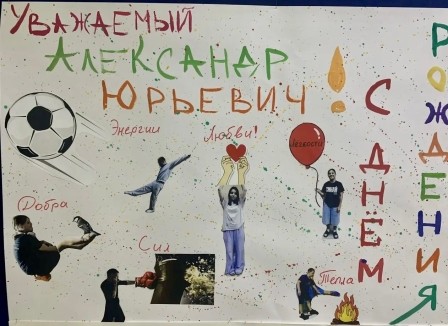 УВАЖАЕМЫЙ
АЛЕКСАНДР
ЮРЬЕВИЧ!
С ДНЁМ
РОЖДЕНИЯ
Энергии
Любви!
Лёгкости
Добра
Сил
Тепла